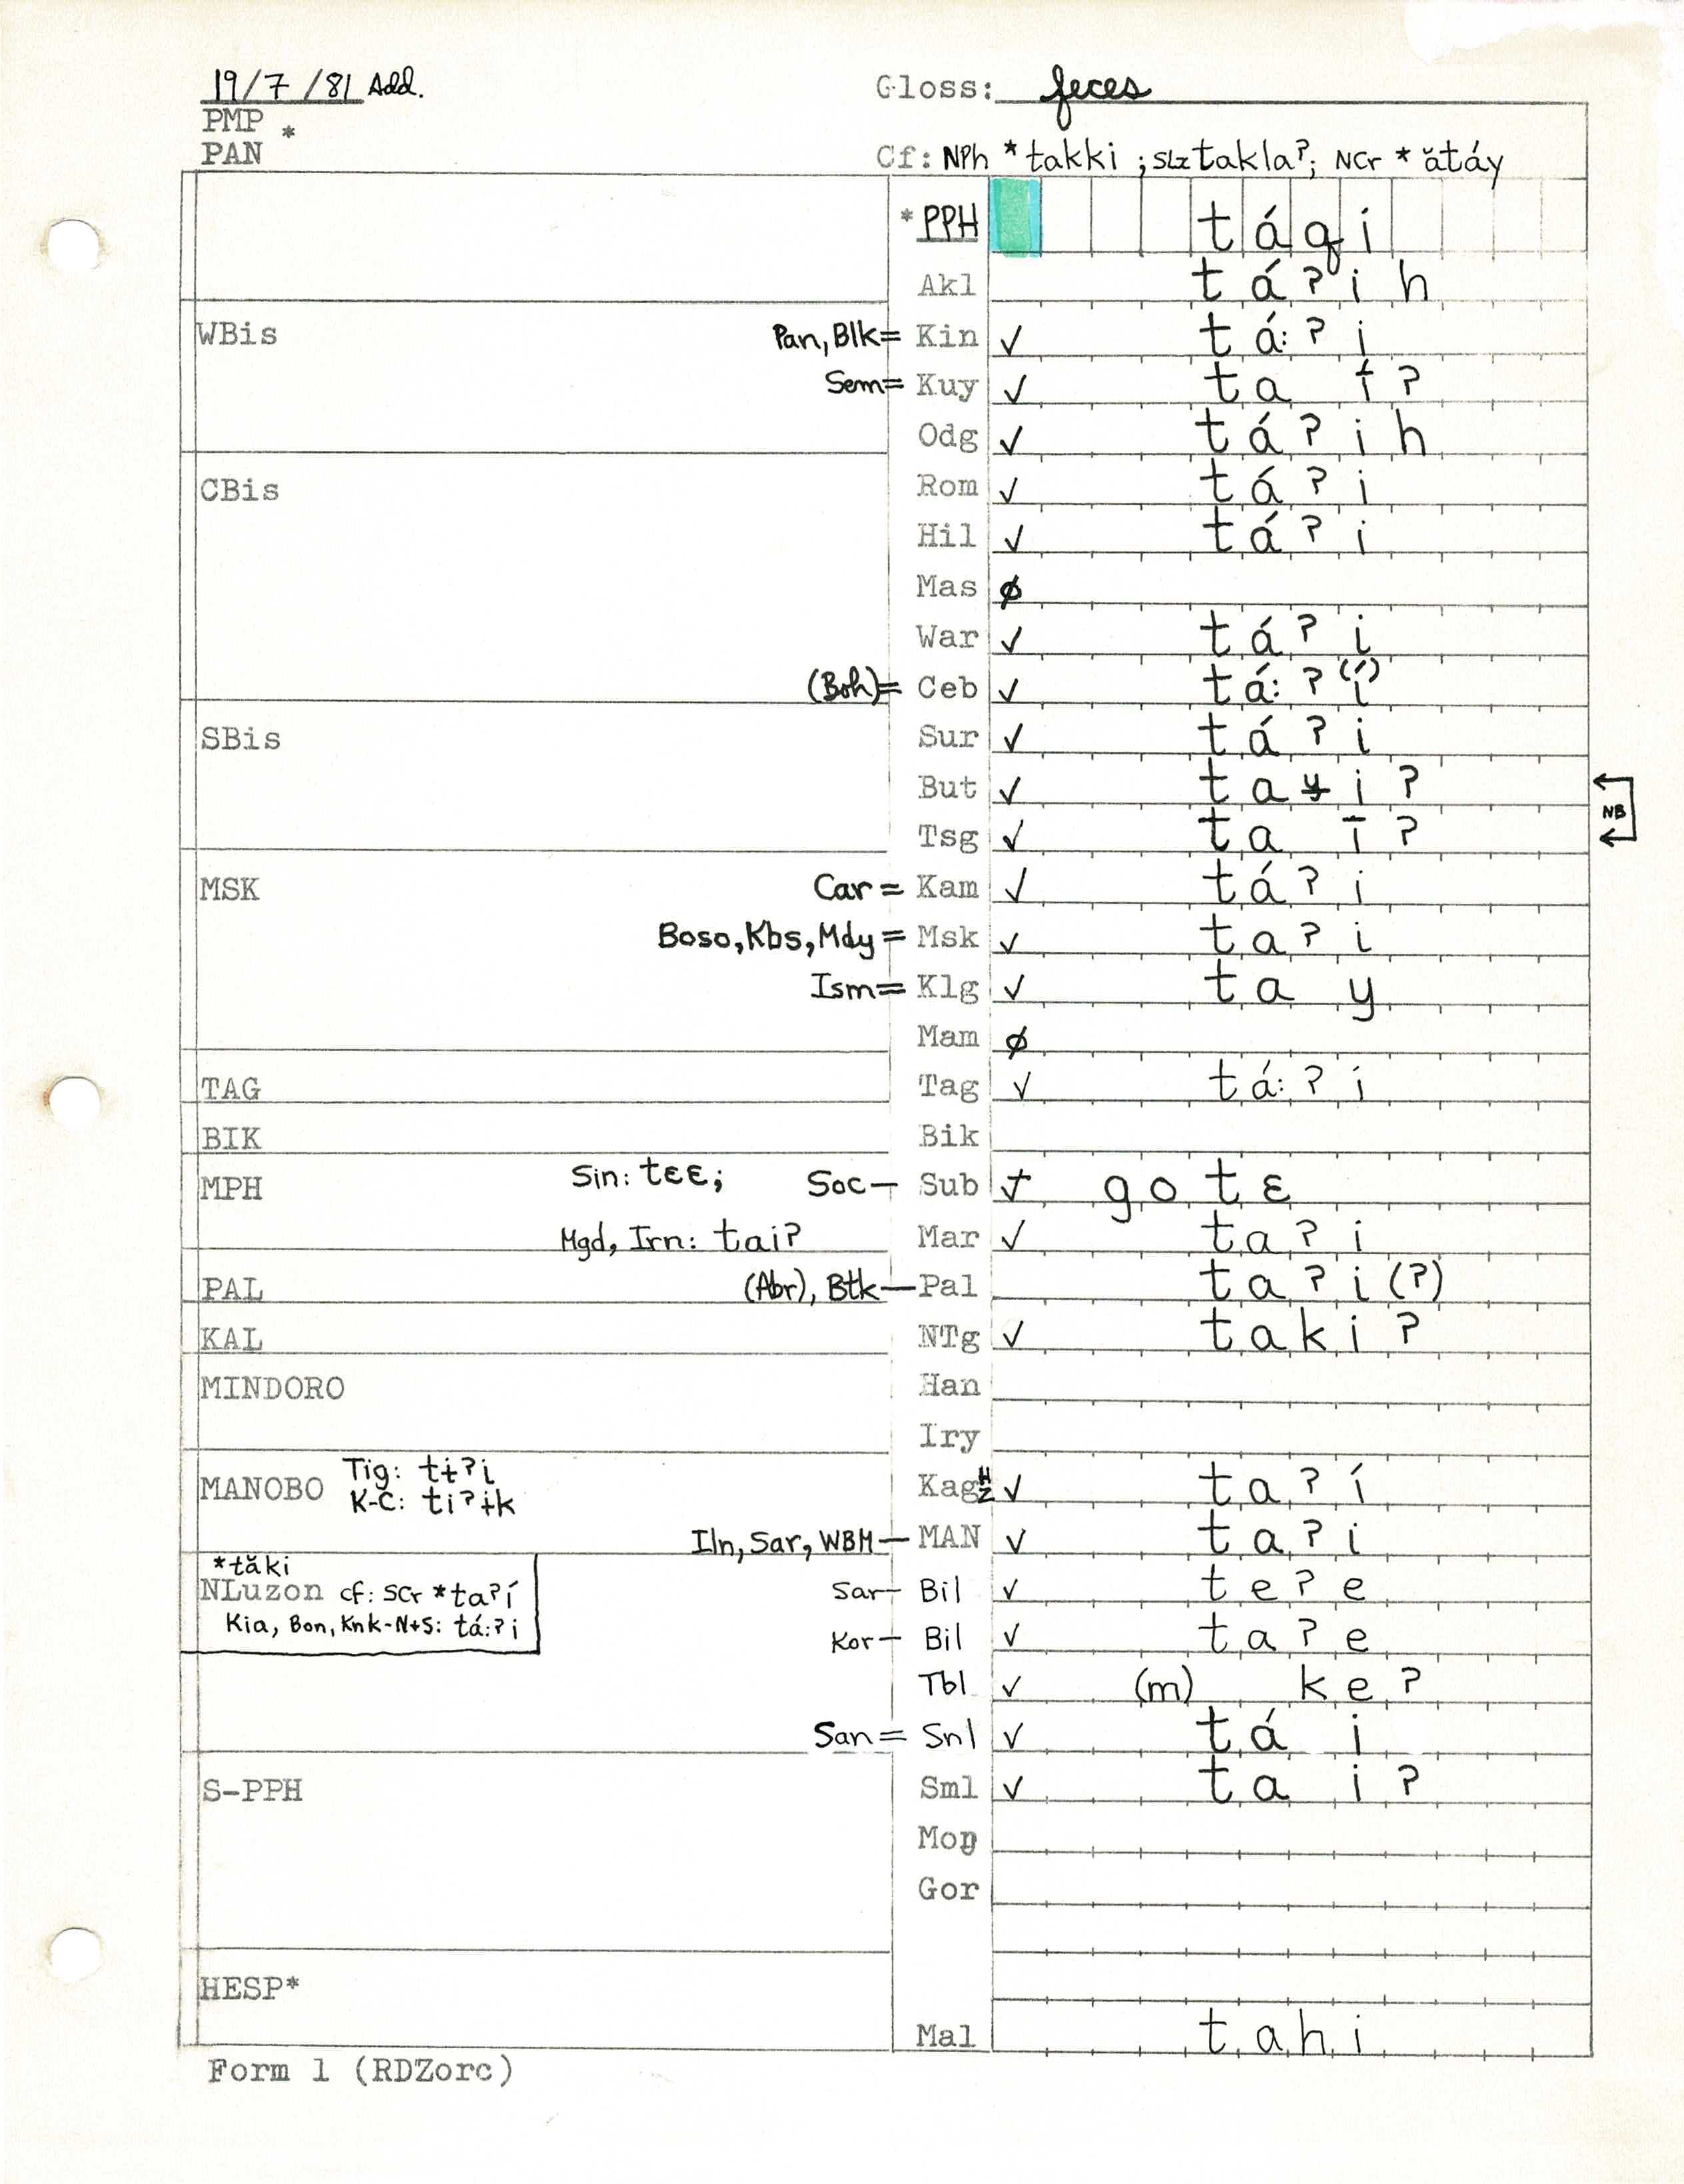 19/7/81 Add. Gloss: feces
PMP *
PAN Cf: NPh *takki ; SLZ takla?; NCr *ătáy
*PPH táqi
Akl tá?ih
WBis Pan, Blk= Kin ✓ tá:?i
Sem= Kuy ✓ ta ī?
Odg ✓ tá?ih
CBis Rom ✓ tá?i
Hil ✓ tá?i
Mas ∅
War ✓ tá?i
(Boh)= Ceb ✓ tá:?i(´)
SBis Sur ✓ tá?i
But ✓ tayi?
NB
Tsg ✓ ta ī?
MSK Car = Kam ✓ tá?i
Boso, Kbs, Mdy = Msk ✓ ta?i
Ism= Klg ✓ ta y
Mam ∅
TAG Tag ✓ tá:?i
BIK Bik
MPH Sin: tɛɛ; Soc— Sub ✓ gotɛ
Mgd, Irn: tai? Mar ✓ ta?i
PAL (Abr), Btk— Pal ta?i(?)
KAL NTg ✓ taki?
MINDORO Han
Iry
MANOBO Tig: tɨ?i
K-C: ti?ɨk
Kag ✓ ta?í
Iln, Sar, WBM— MAN ✓ ta?i
*tăki
NLuzon cf: SCr *ta?í Sar— Bil ✓ te?e
Kia, Bon, Knk-N+S: tá:?i Kor— Bil ✓ ta?e
Tbl ✓ (m) ke?
San= Snl ✓ tá i
S-PPH Sml ✓ ta i?
Moŋ
Gor
HESP*
Mal tahi
Form 1 (RDZorc)